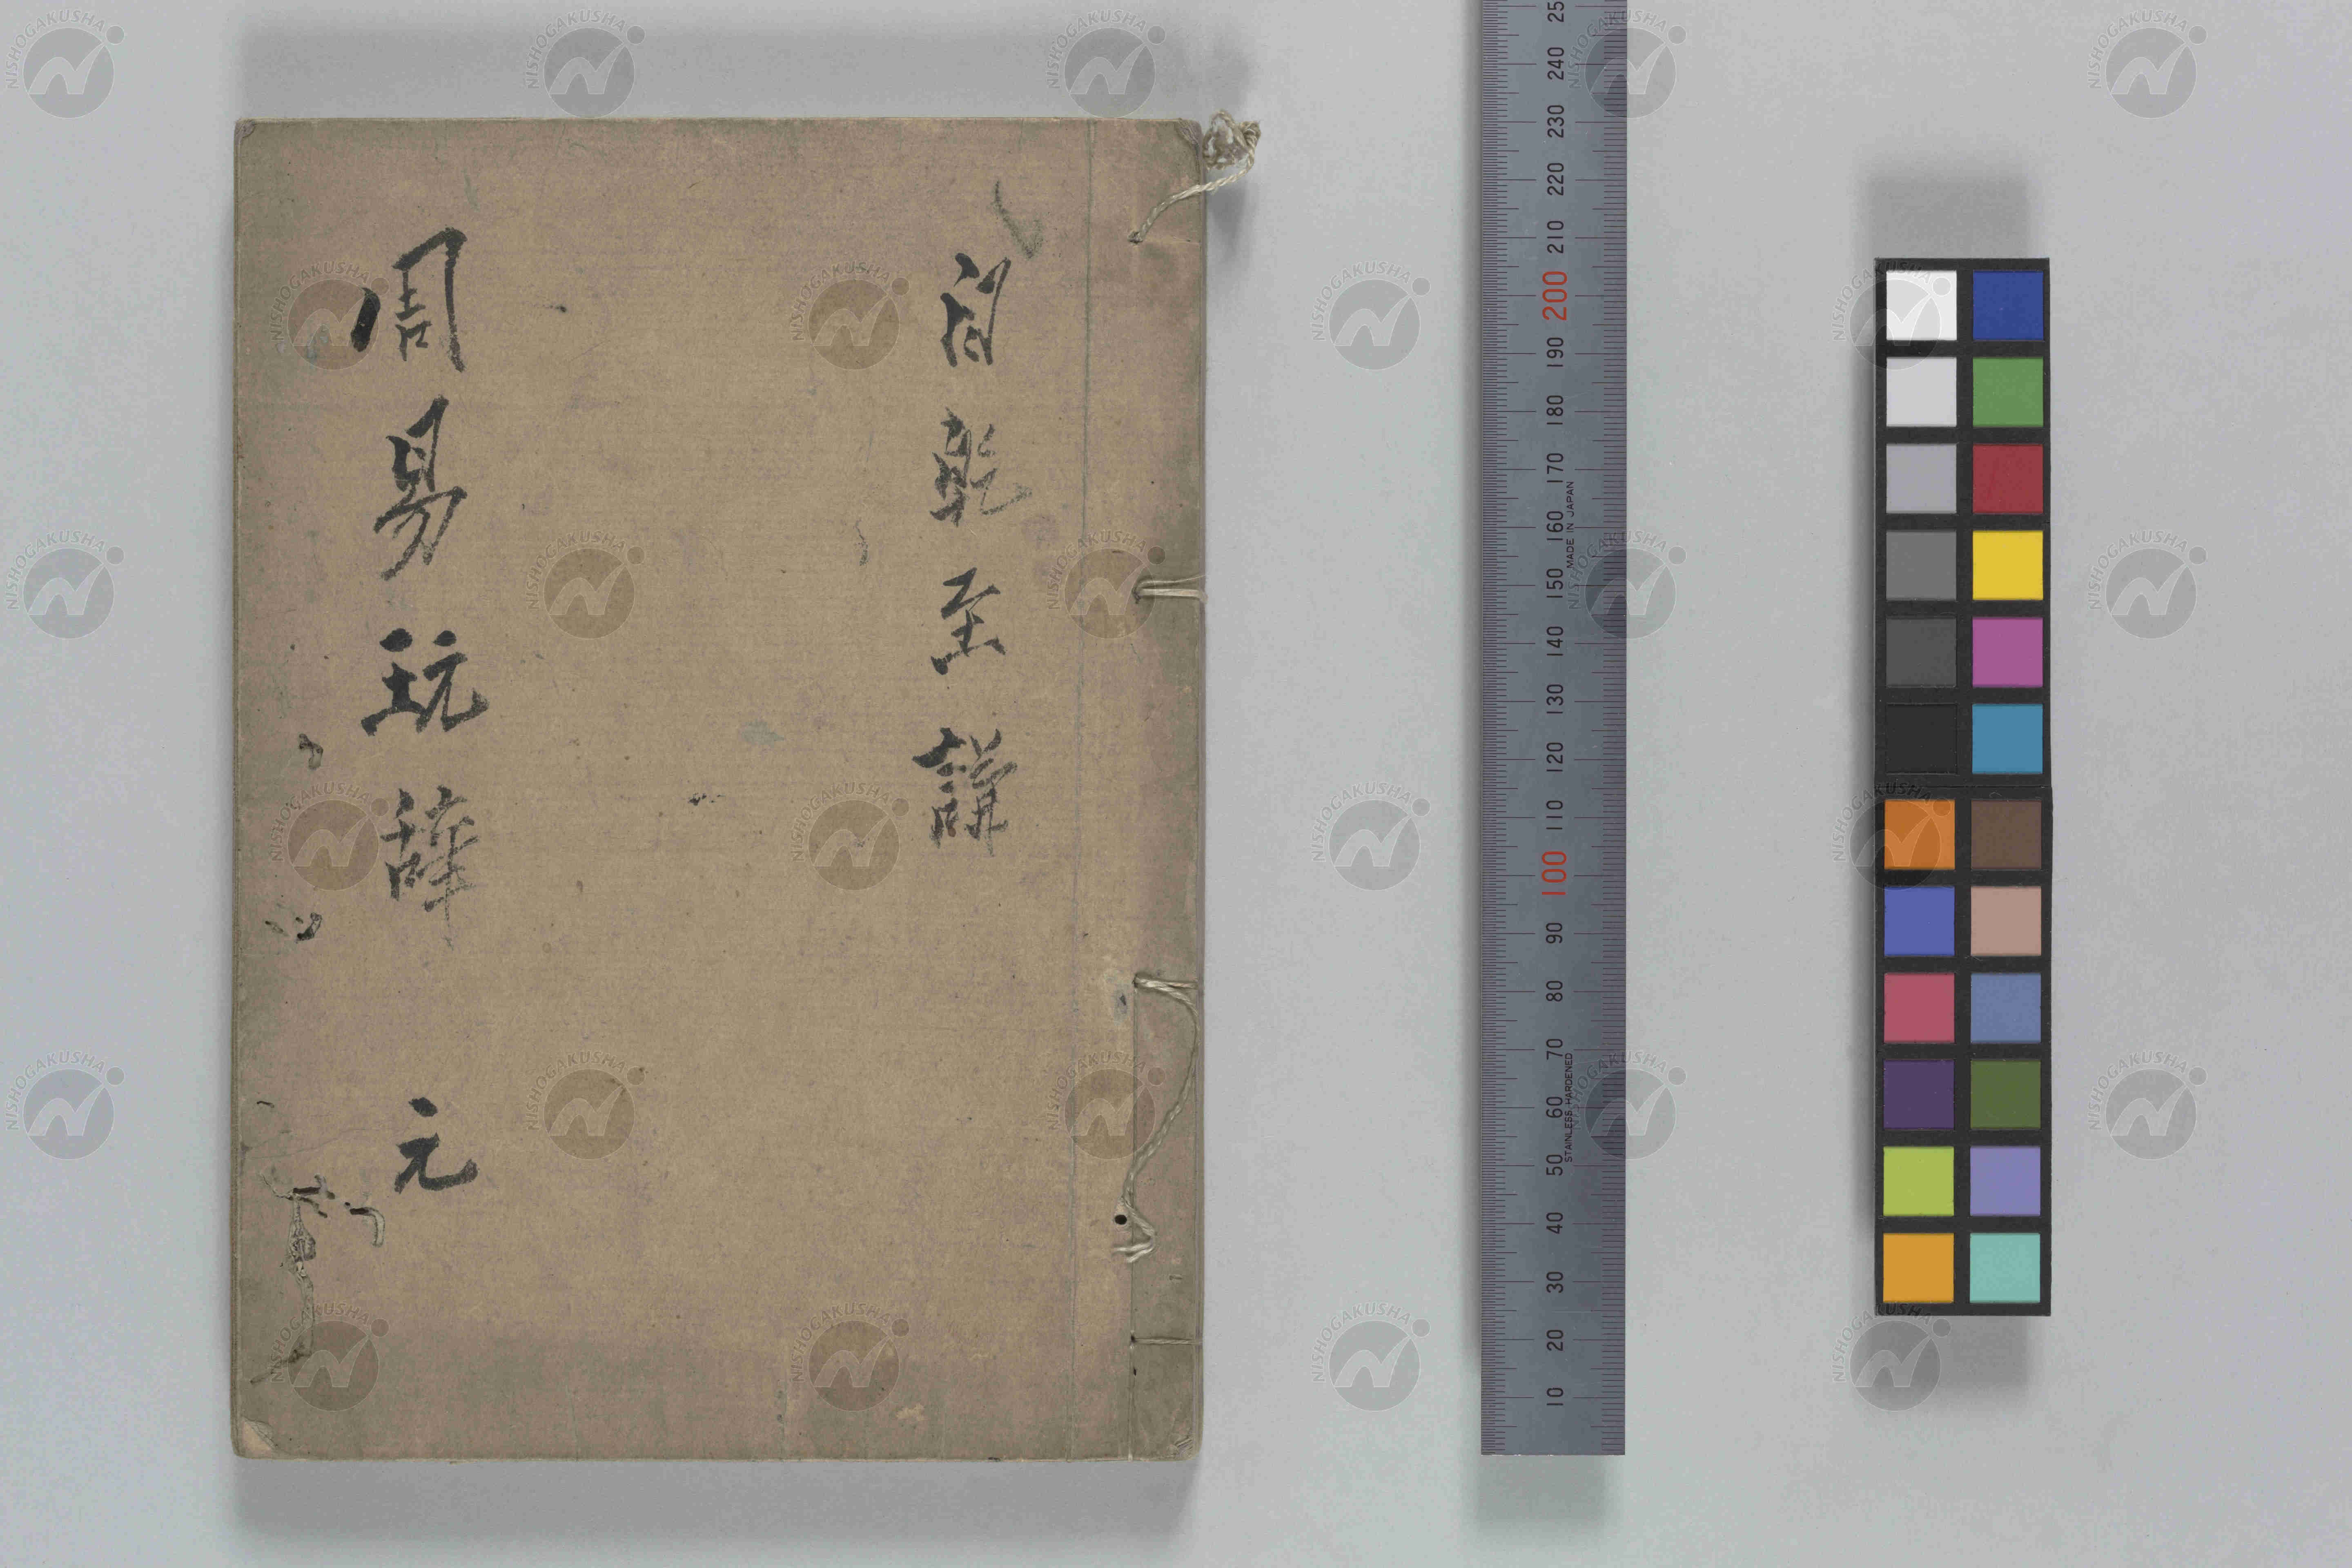 自乾至謙
周易玩辞 元
240
230
220
210
200
190
180
170
160
150
140
130
120
110
100
90
80
70
60
50
40
30
20
10
MADE IN JAPAN
STAINLESS HARDENED
NISHOGAKUSHA